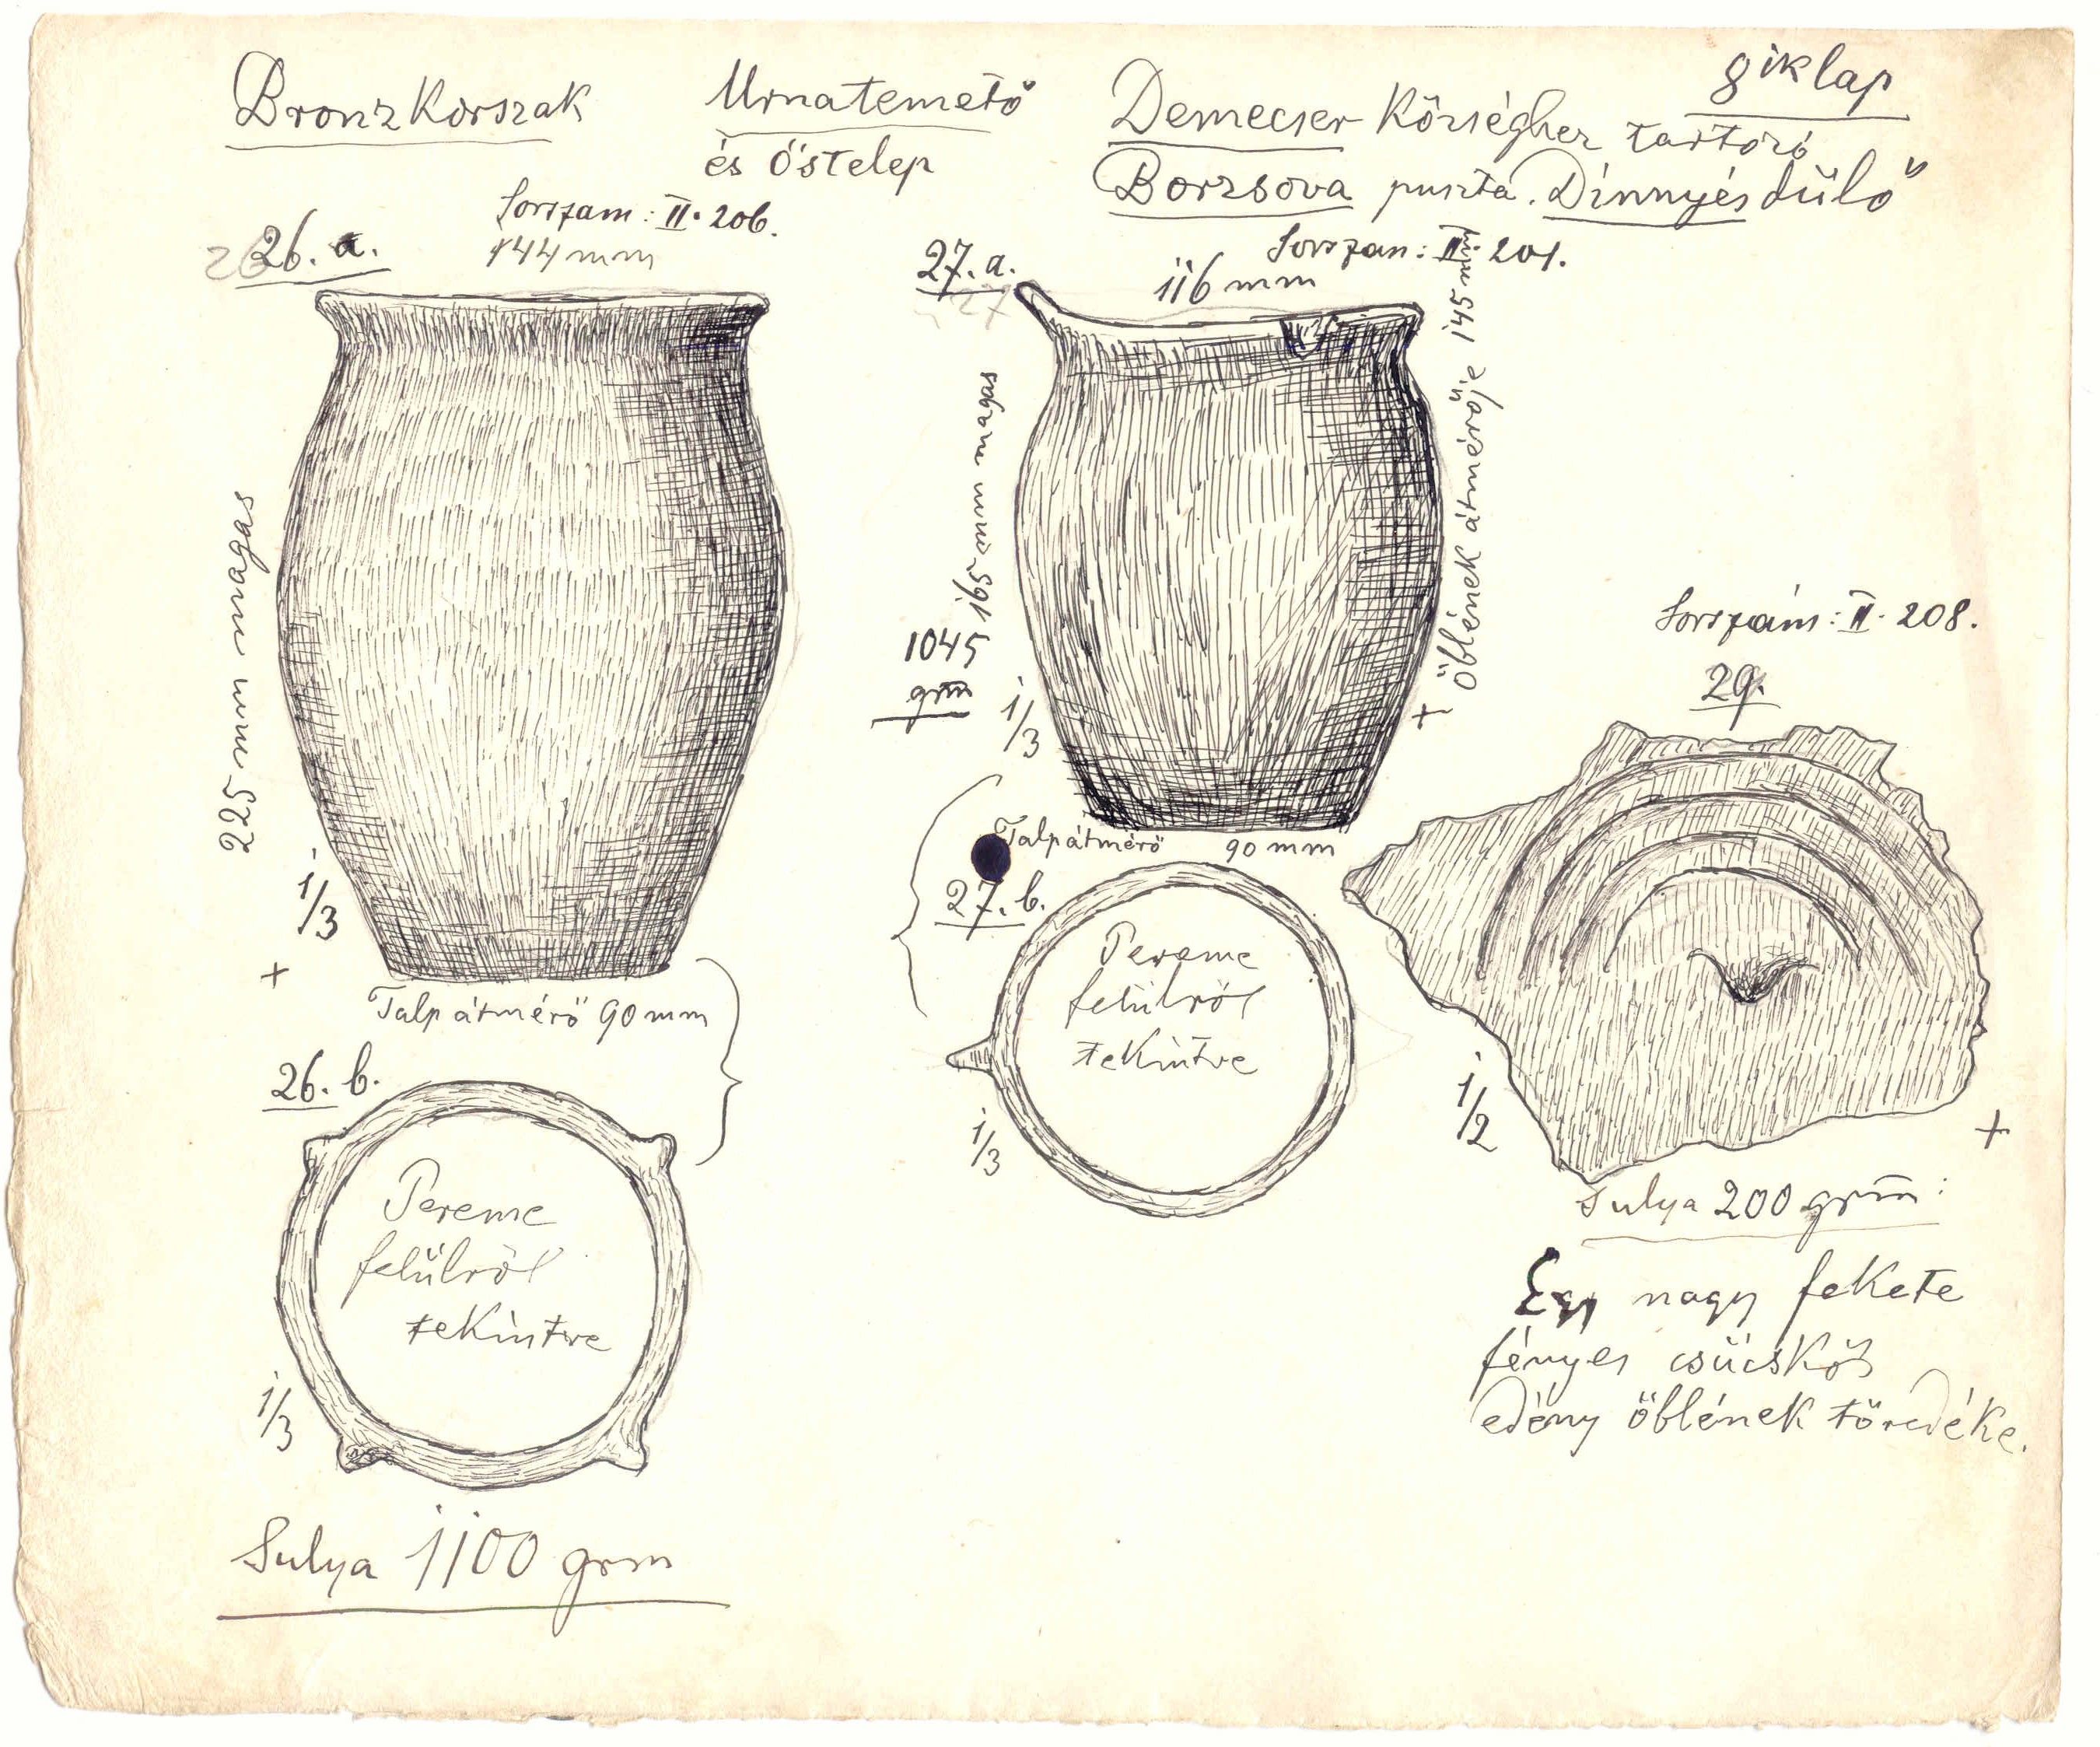 Bronzkorszak
Urnatemető
és őstelep
Demecser községhez tartozó
Borzsova puszta. Dinnyés dülő
8ik lap
26. a.
Sorszam: II. 206.
144 mm
225 mm magas
1/3
+
Talpátmérő 90 mm
26. b.
Pereme
felülről
tekintve
1/3
Sulya 1100 grm
27. a.
27
Sorszam: II. 201.
116 mm
165 mm magas
1045
grm
1/3
+ öblének átmérője 145 mm
Talpátmérő 90 mm
27. b.
Pereme
felülről
tekintve
1/3
Sorszám: II. 208.
29.
1/2
+
Sulya 200 grm:
Egy nagy fekete
fényes csücskös
edény öblének töredéke.